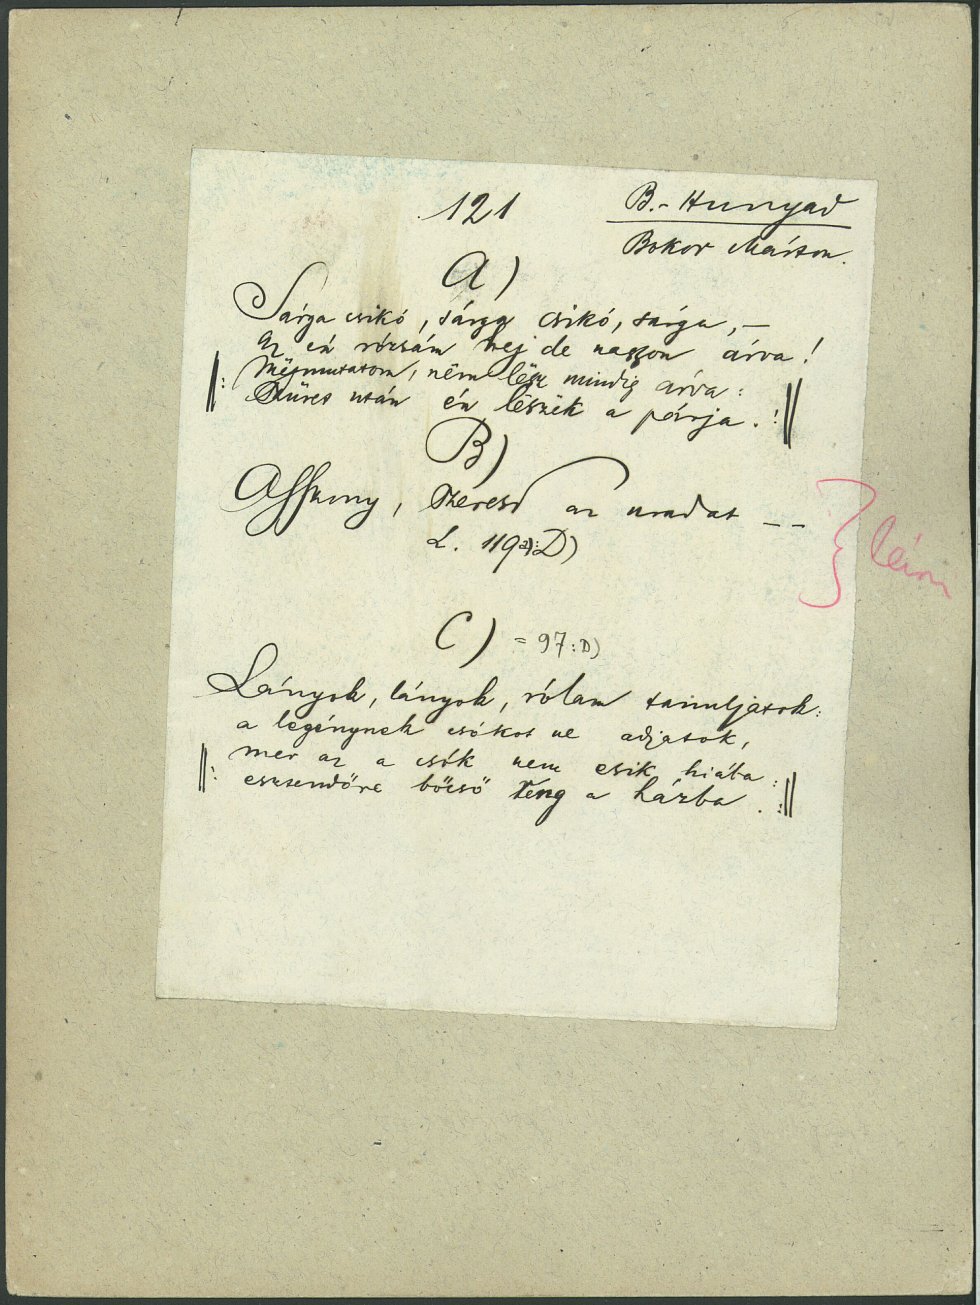 121
B.- Hunyad
Bokor Márton.
A)
Sárga csikó, sárga csikó, sárga, —
Az én rózsám hej de nagyon árva!
‖: Mëgmutatom, nëm lësz mindig árva:
Szüret után én lëszëk a párja. :‖
B)
Asszony, szeresd az uradat – –
L. 119a): D)
leírni
C) = 97: D)
Lányok, lányok, rólam tanuljatok:
a legénynek csókot ne adjatok,
‖: mer az a csók nem esik hiába:
esztendőre bőcső réng a házba. :‖